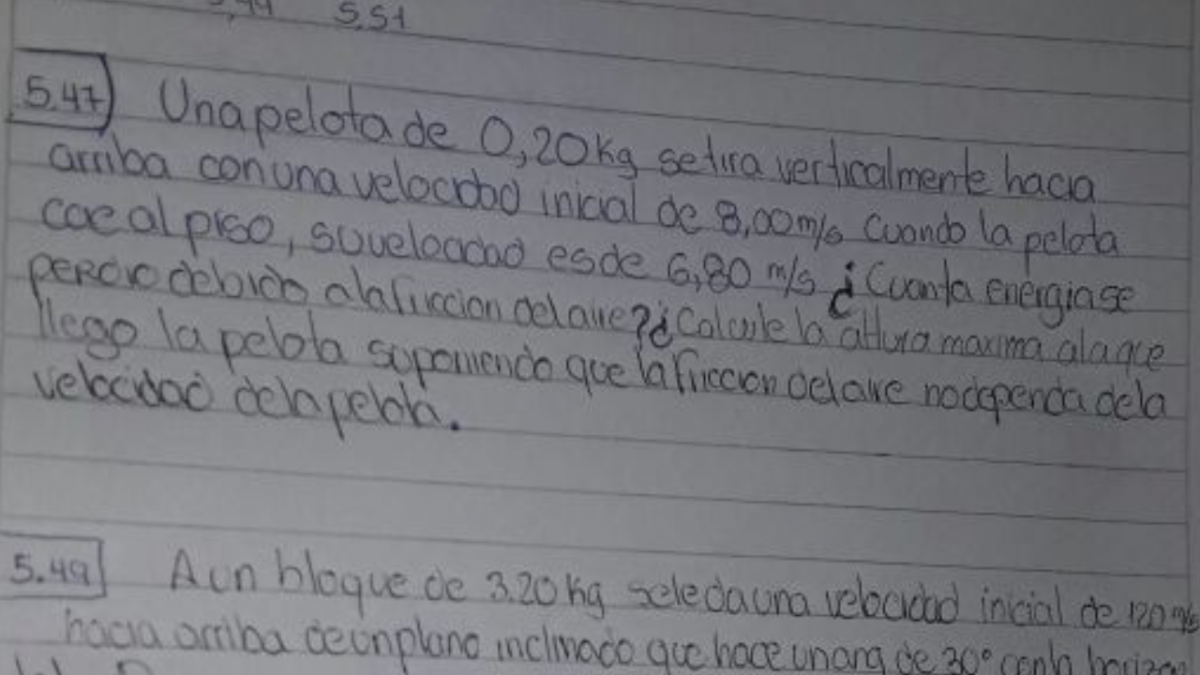 5.51
5.47) Una pelota de 0,20 Kg se tira verticalmente hacia
arriba con una velocidad inicial de 8,00 m/s cuando la pelota
cae al piso, su velocidad es de 6,80 m/s ¿Cuanta energia se
perdio debido a la friccion del aire? ¿Calcule la altura maxima a la que
llego la pelota suponiendo que la friccion del aire no dependa de la
velocidad de la pelota.
5.49 A un bloque de 3.20 Kg se le da una velocidad inicial de
hacia arriba de un plano inclinado que hace un ang de 30° con la